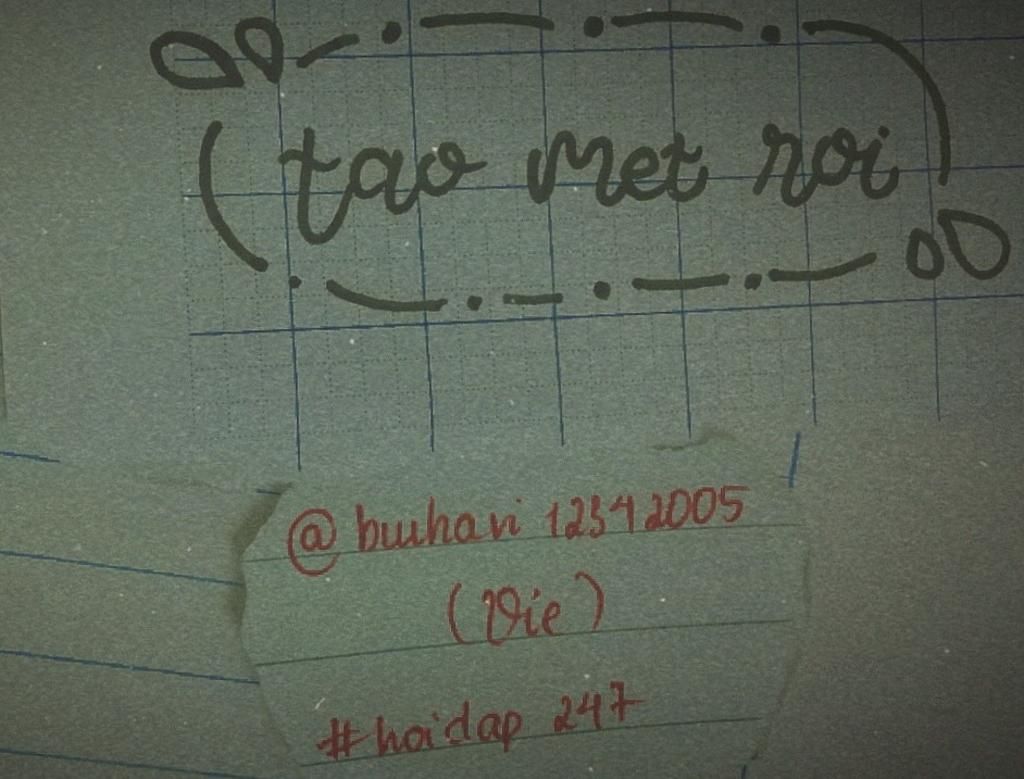 tao met roi
@buihavi 12342005
(Vie)
#hoidap 247